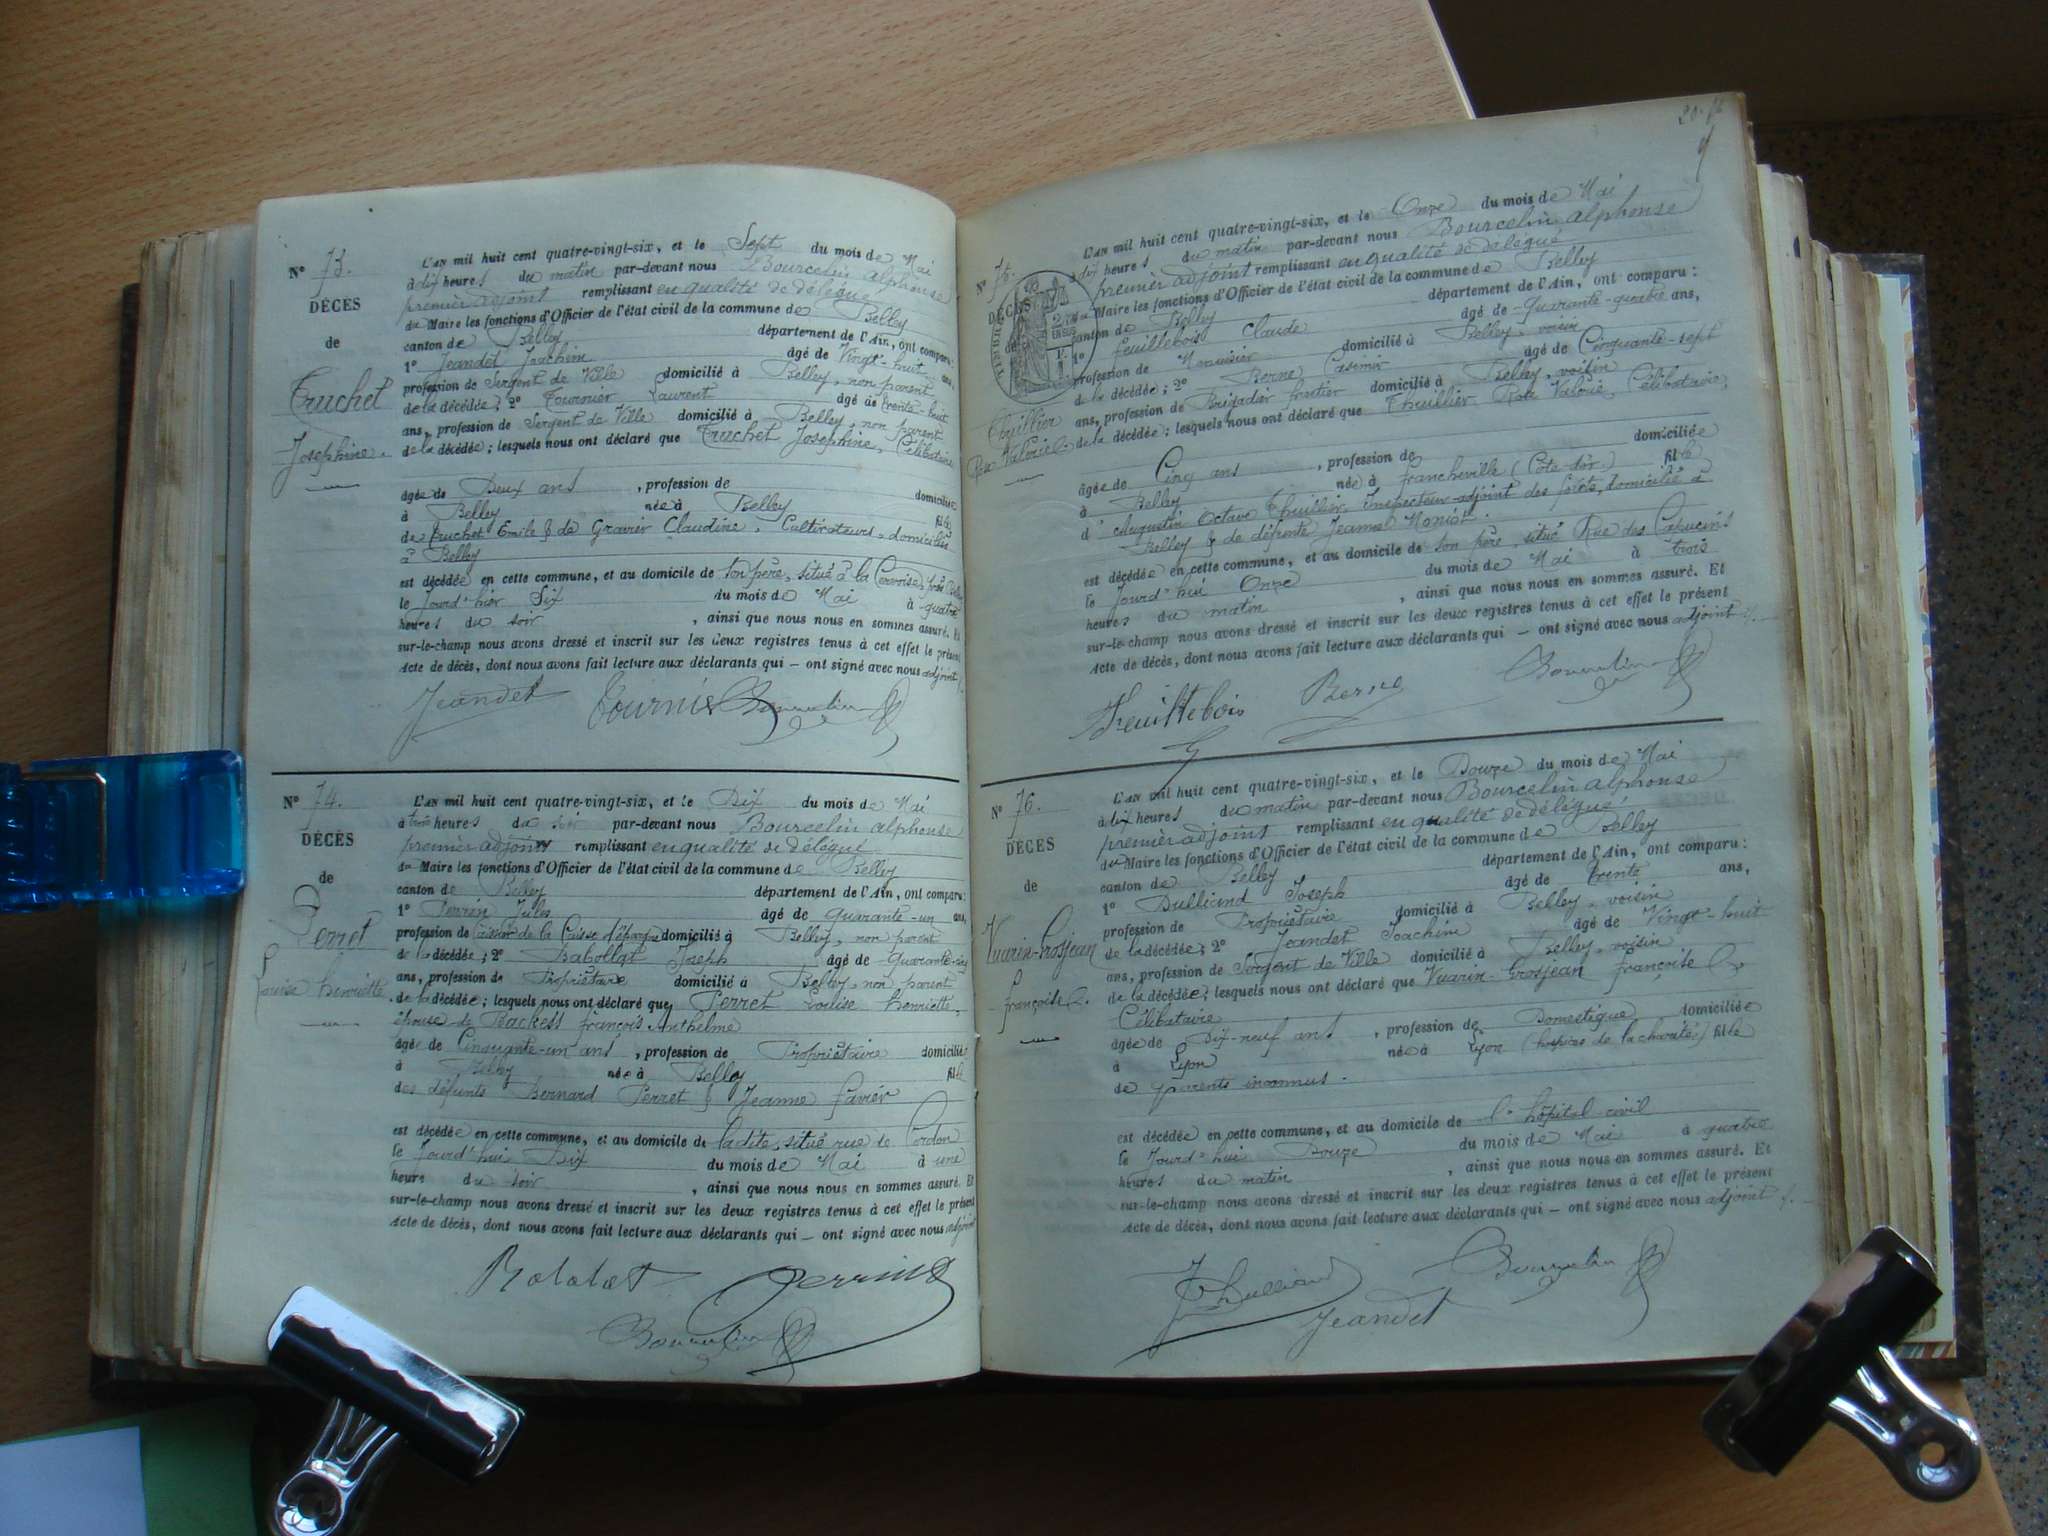 N° 73.
DÉCÈS
de
Truchet
Josephine.
L'AN mil huit cent quatre-vingt-six, et le Sept du mois de Mai
à dix heures du matin par-devant nous Bourcelin alphonse
premier adjoint remplissant en qualité de délégué
du Maire les fonctions d'Officier de l'état civil de la commune de Belley
canton de Belley département de l'Ain, ont comparu:
1° Jeandet Joachim âgé de Vingt-huit ans,
profession de Sergent de Ville domicilié à Belley, non parent
de la décédée; 2° Tournier Laurent âgé de trente-huit
ans, profession de Sergent de Ville domicilié à Belley, non parent
de la décédée; lesquels nous ont déclaré que Truchet Josephine, Célibataire
âgée de Deux ans , profession de domiciliée
à Belley née à Belley fille
de Truchet Emile & de Gravier Claudine, Cultivateurs, domiciliés
à Belley
est décédée en cette commune, et au domicile de son père, situé à la près Belley
le Jourd'hier Six du mois de Mai à quatre
heures du soir , ainsi que nous nous en sommes assuré. Et
sur-le-champ nous avons dressé et inscrit sur les deux registres tenus à cet effet le présent
Acte de décès, dont nous avons fait lecture aux déclarants qui — ont signé avec nous adjoint
Jeandet Tournier Bourcelin
N° 74.
DÉCÈS
de
Perret
Louise henriette
L'AN mil huit cent quatre-vingt-six, et le Dix du mois de Mai
à trois heures du soir par-devant nous Bourcelin alphonse
premier adjoint remplissant en qualité de délégué
du Maire les fonctions d'Officier de l'état civil de la commune de Belley
canton de Belley département de l'Ain, ont comparu:
1° Perrin Jules âgé de quarante-un ans,
profession de Caissier de la Caisse d'épargne domicilié à Belley, non parent
de la décédée; 2° Rabollat Joseph âgé de quarante-
ans, profession de Propriétaire domicilié à Belley, non parent
de la décédée; lesquels nous ont déclaré que Perret Louise henriette,
épouse de françois Anthelme
âgée de Cinquante-un ans , profession de Propriétaire domiciliée
à Belley née à Belley fille
des défunts Bernard Perret & Jeanne favier
est décédée en cette commune, et au domicile de ladite, situé rue de Cordon
le Jourd'hui Dix du mois de Mai à une
heure du soir , ainsi que nous nous en sommes assuré. Et
sur-le-champ nous avons dressé et inscrit sur les deux registres tenus à cet effet le présent
Acte de décès, dont nous avons fait lecture aux déclarants qui — ont signé avec nous adjoint
Rabolat Perrin
Bourcelin
N° 75.
DÉCÈS
de
Thuillier
Rose Valérie
L'AN mil huit cent quatre-vingt-six, et le Onze du mois de Mai
à dix heures du matin par-devant nous Bourcelin alphonse
premier adjoint remplissant en qualité de délégué
du Maire les fonctions d'Officier de l'état civil de la commune de Belley
canton de Belley département de l'Ain, ont comparu:
1° feuillebois Claude âgé de quarante-quatre ans,
profession de Menuisier domicilié à Belley, voisin
de la décédée; 2° Berne Casimir âgé de Cinquante-sept
ans, profession de Brigadier forestier domicilié à Belley, voisin
de la décédée; lesquels nous ont déclaré que Thuillier Rose Valérie, Célibataire,
âgée de Cinq ans , profession de domiciliée
à Belley née à francheville (Côte d'or) fille
d'Augustin Octave Thuillier, Inspecteur-adjoint des forêts, domicilié à
Belley & de défunte Jeanne Moniot.
est décédée en cette commune, et au domicile de son père, situé Rue des Capucins
le Jourd'hui Onze du mois de Mai à trois
heures du matin , ainsi que nous nous en sommes assuré. Et
sur-le-champ nous avons dressé et inscrit sur les deux registres tenus à cet effet le présent
Acte de décès, dont nous avons fait lecture aux déclarants qui — ont signé avec nous adjoint
Feuillebois Berne Bourcelin
N° 76.
DÉCÈS
de
Vuarin-Grosjean
françoise
L'AN mil huit cent quatre-vingt-six, et le Douze du mois de Mai
à dix heures du matin par-devant nous Bourcelin alphonse
premier adjoint remplissant en qualité de délégué
du Maire les fonctions d'Officier de l'état civil de la commune de Belley
canton de Belley département de l'Ain, ont comparu:
1° Dulliand Joseph âgé de trente ans,
profession de Propriétaire domicilié à Belley, voisin
de la décédée; 2° Jeandet Joachim âgé de Vingt-huit
ans, profession de Sergent de Ville domicilié à Belley, voisin
de la décédée; lesquels nous ont déclaré que Vuarin-Grosjean françoise
Célibataire
âgée de Dix-neuf ans , profession de Domestique domiciliée
à Lyon née à Lyon (hospice de la charité) fille
de parents inconnus.
est décédée en cette commune, et au domicile de l'hôpital civil
le Jourd'hui Douze du mois de Mai à quatre
heures du matin , ainsi que nous nous en sommes assuré. Et
sur-le-champ nous avons dressé et inscrit sur les deux registres tenus à cet effet le présent
Acte de décès, dont nous avons fait lecture aux déclarants qui — ont signé avec nous adjoint
J Dulliand Bourcelin
Jeandet